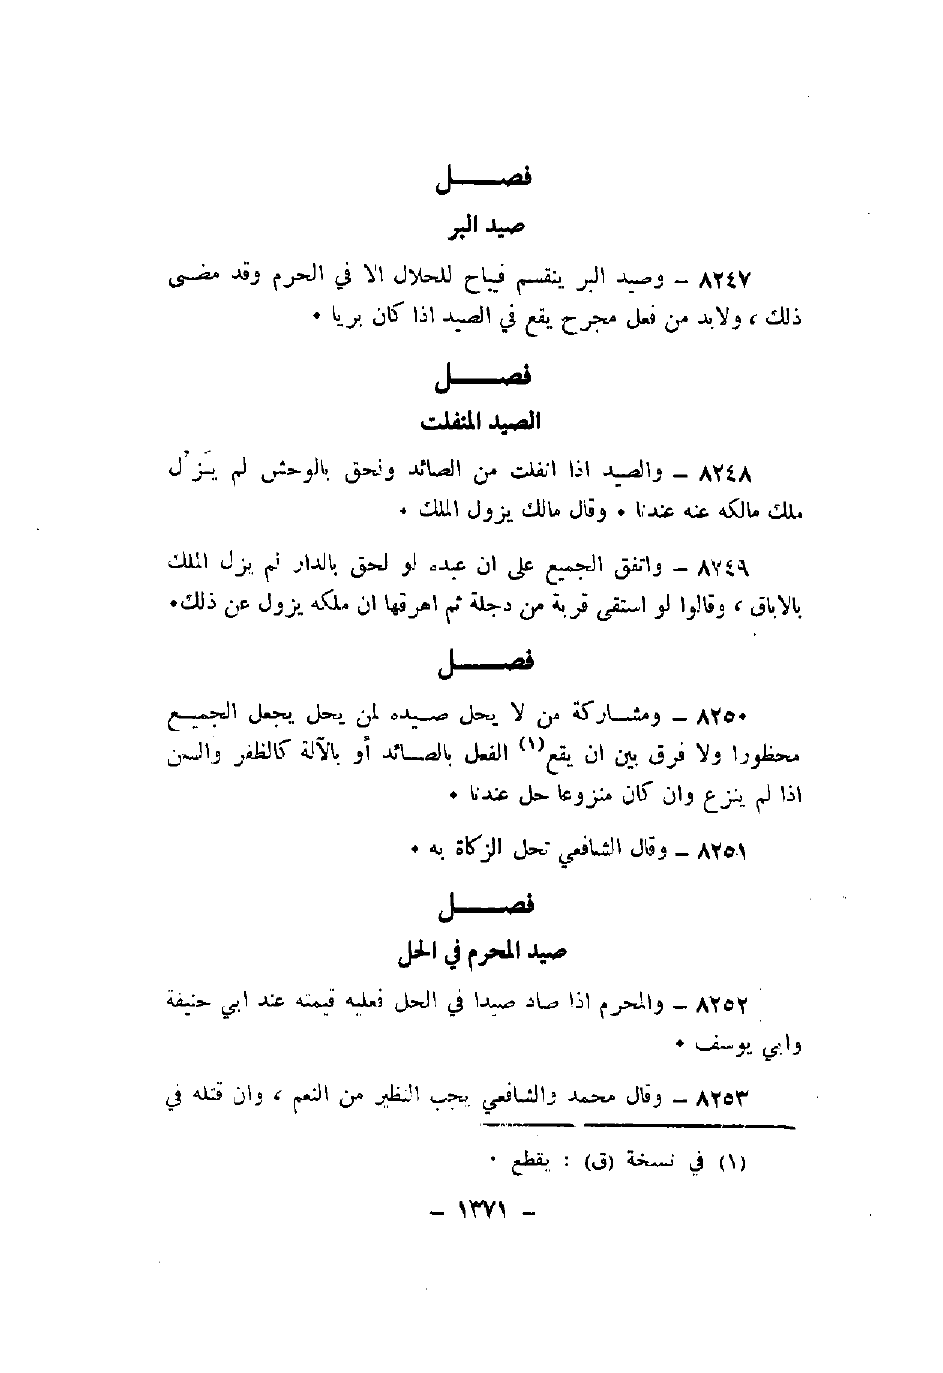 فصـــــل
صيد البر
٨٢٤٧ – وصيد البر ينقسم فيباح للحلال الا في الحرم وقد مضى
ذلك ، ولابد من فعل مجرح يقع في الصيد اذا كان بريا ٠
فصـــــل
الصيد المنفلت
٨٢٤٨ – والصيد اذا انفلت من الصائد ولحق بالوحش لم يَزُل
ملك مالكه عنه عندنا ٠ وقال مالك يزول الملك ٠
٨٢٤٩ – واتفق الجميع على ان عبده لو لحق بالدار لم يزل الملك
بالاباق ، وقالوا لو استقى قربة من دجلة ثم اهرقها ان ملكه يزول عن ذلك٠
فصـــــل
٨٢٥٠ – ومشـاركة من لا يحل صـيده لمن يحل يجعل الجميـع
محظورا ولا فرق بين ان يقع(١) الفعل بالصـائد أو بالآلة كالظفر والسن
اذا لم ينزع وان كان منزوعا حل عندنا ٠
٨٢٥١ – وقال الشافعي تحل الزكاة به ٠
فصـــــل
صيد المحرم في الحل
٨٢٥٢ – والمحرم اذا صاد صيدا في الحل فعليه قيمته عند ابي حنيفة
وابي يوسف ٠
٨٢٥٣ – وقال محمد والشافعي يجب النظير من النعم ، وان قتله في
(١) في نسخة (ق) : يقطع ٠
– ١٣٧١ –